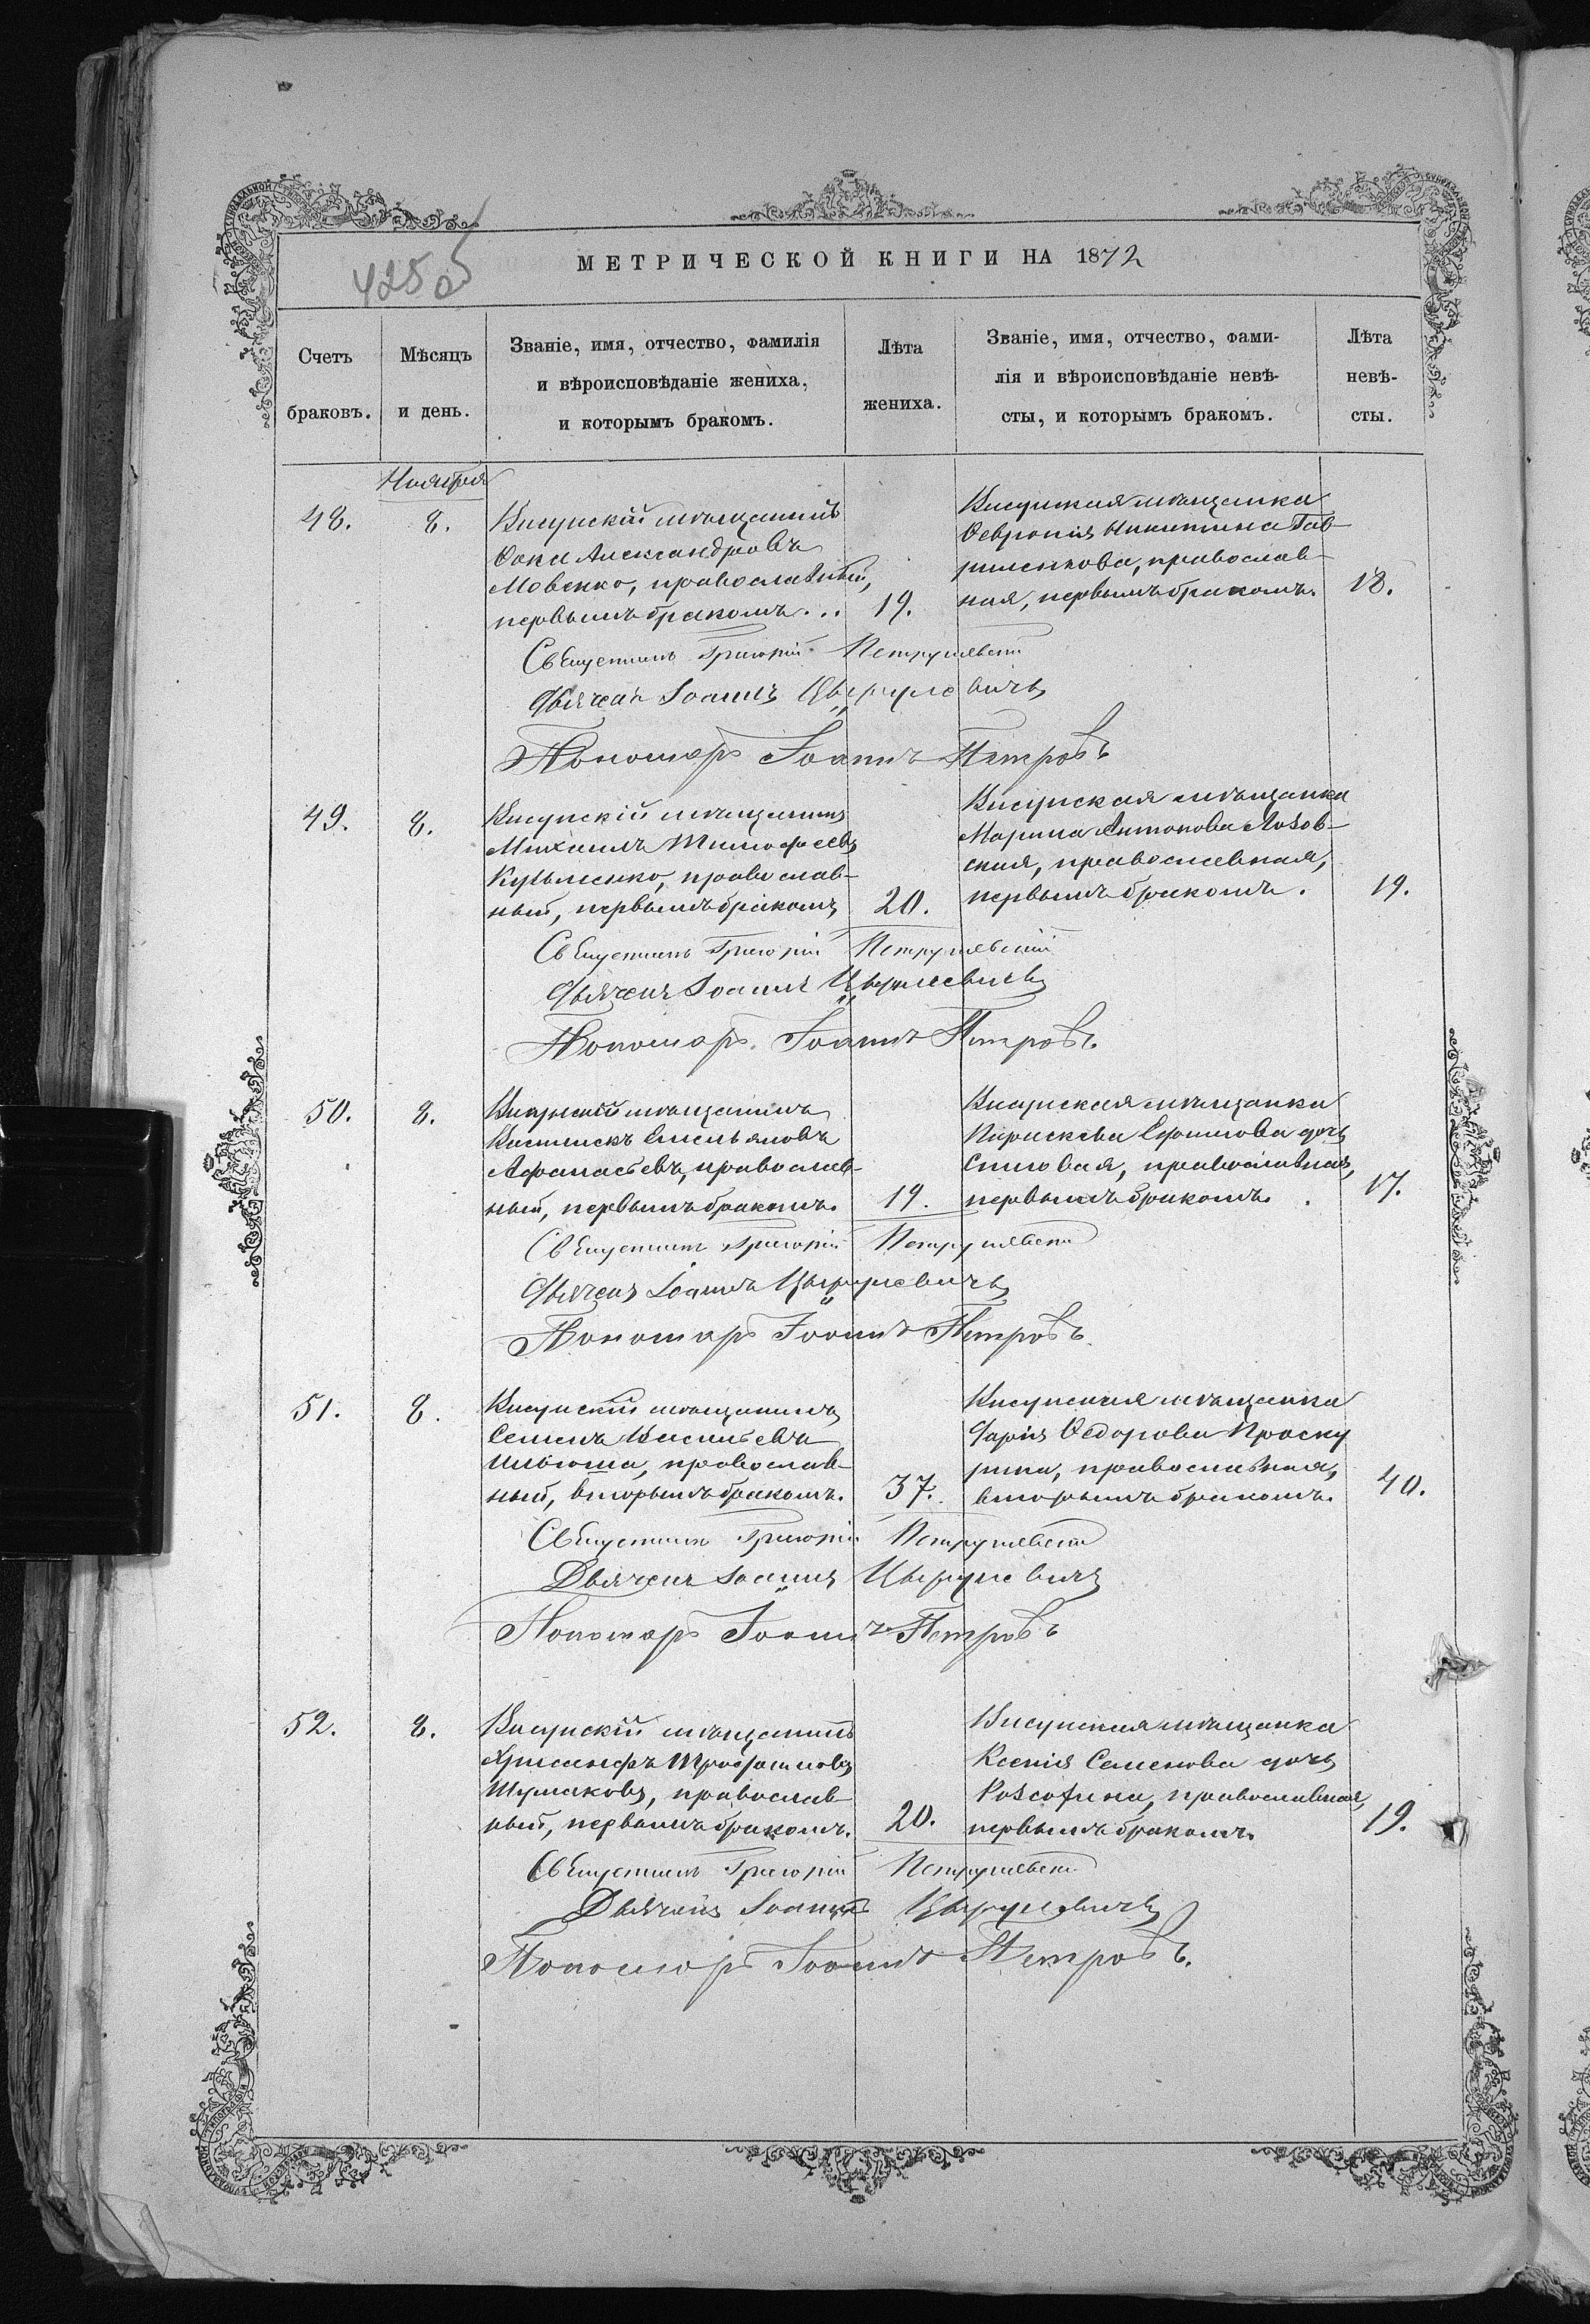 МЕТРИЧЕСКОЙ КНИГИ НА 1872
Счетъ браковъ.
Мѣсяцъ и день.
Званіе, имя, отчество, фамилія
и вѣроисповѣданіе жениха,
и которымъ бракомъ.
Лѣта жениха.
Званіе, имя, отчество, фами-
лія и вѣроисповѣданіе невѣ-
сты, и которымъ бракомъ.
Лѣта невѣ-
сты.
Ноября
48.
8.
Висунскій мѣщанинъ
Ѳока Александровъ
Мовенко, православный,
первымъ бракомъ...
19.
Висунская мѣщанка
Ѳевронія Никитина Гав-
риленкова, православ-
ная, первымъ бракомъ.
18.
Священникъ Григорій
Дьячекъ Іоаннъ Цыруле вичъ
Пономарь Іоаннъ Петровъ
49.
8.
Висунскій мѣщанинъ
Михаилъ Тимофеевъ
Кузьменко, православ-
ный, первымъ бракомъ
20.
Висунская мѣщанка
Марина Антонова Лозов-
ская, православная,
первымъ бракомъ.
19.
Священникъ Григорій
Дьячекъ Іоаннъ Цырулевичъ
Пономарь Іоаннъ Петровъ.
50.
8.
Висунскій мѣщанинъ
Емельяновъ
Афанасьевъ, православ-
ный, первымъ бракомъ.
19.
Висунская мѣщанка
Параскева Ефимова дочь
православная,
первымъ бракомъ.
17.
Священникъ Григорій
Дьячекъ Іоаннъ Цырулевичъ
Пономарь Іоаннъ Петровъ
51.
8.
Висунскій мѣщанинъ
Семенъ Васильевъ
православ-
ный, вторымъ бракомъ.
37.
Висунская мѣщанка
Дарія Ѳедорова Проску
рина, православная,
вторымъ бракомъ.
40.
Священникъ Григорій
Дьячекъ Іоаннъ Цырулевичъ
Пономарь Іоаннъ Петровъ
52.
8.
Висунскій мѣщанинъ
Хрисанфъ Трофимовъ
Шумаковъ, православ-
ный, первымъ бракомъ.
20.
Висунская мѣщанка
Ксенія Семенова дочь
православная,
первымъ бракомъ.
19.
Священникъ Григорій
Дьячекъ Іоаннъ Цырулевичъ
Пономарь Іоаннъ Петровъ.